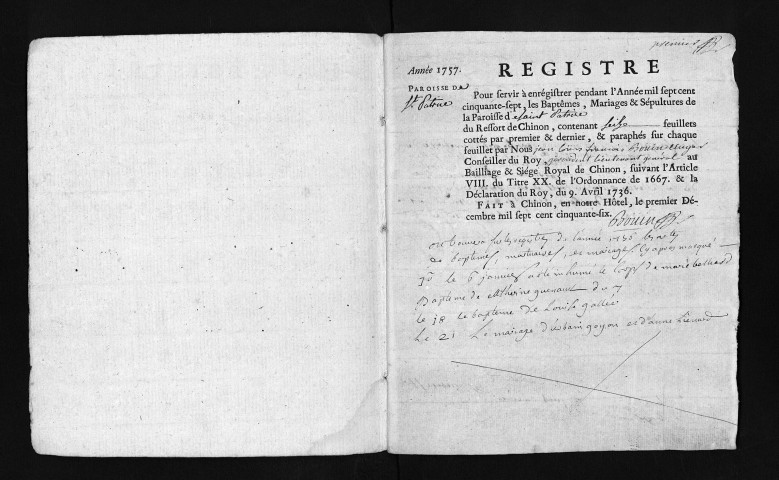 premier
Année 1757. REGISTRE
PAROISSE DE
St Patrice
Pour servir à enrégistrer pendant l'Année mil sept cent
cinquante-sept, les Baptêmes, Mariages & Sépultures de
la Paroisse de saint Patrice
du Ressort de Chinon, contenant seize feuillets
cottés par premier & dernier, & paraphés sur chaque
feuillet par Nous jean Louis francois Bouin
Conseiller du Roy, president lieutenant general au
Bailliage & Siége Royal de Chinon, suivant l'Article
VIII. du Titre XX. de l'Ordonnance de 1667. & la
Déclaration du Roy, du 9. Avril 1736.
FAIT à Chinon, en notre Hôtel, le premier Dé-
cembre mil sept cent cinquante-six.
Bouin
registre de l'année 1756 les actes
de baptemes, mortuaires, et mariages cy apres marqué
le 6 janvier a esté inhumé le corps de marie
Bapteme de Catherine du 7
le 18 le bapteme de Louise gallée
Le 21 Le mariage d'urbain goyon et d'anne